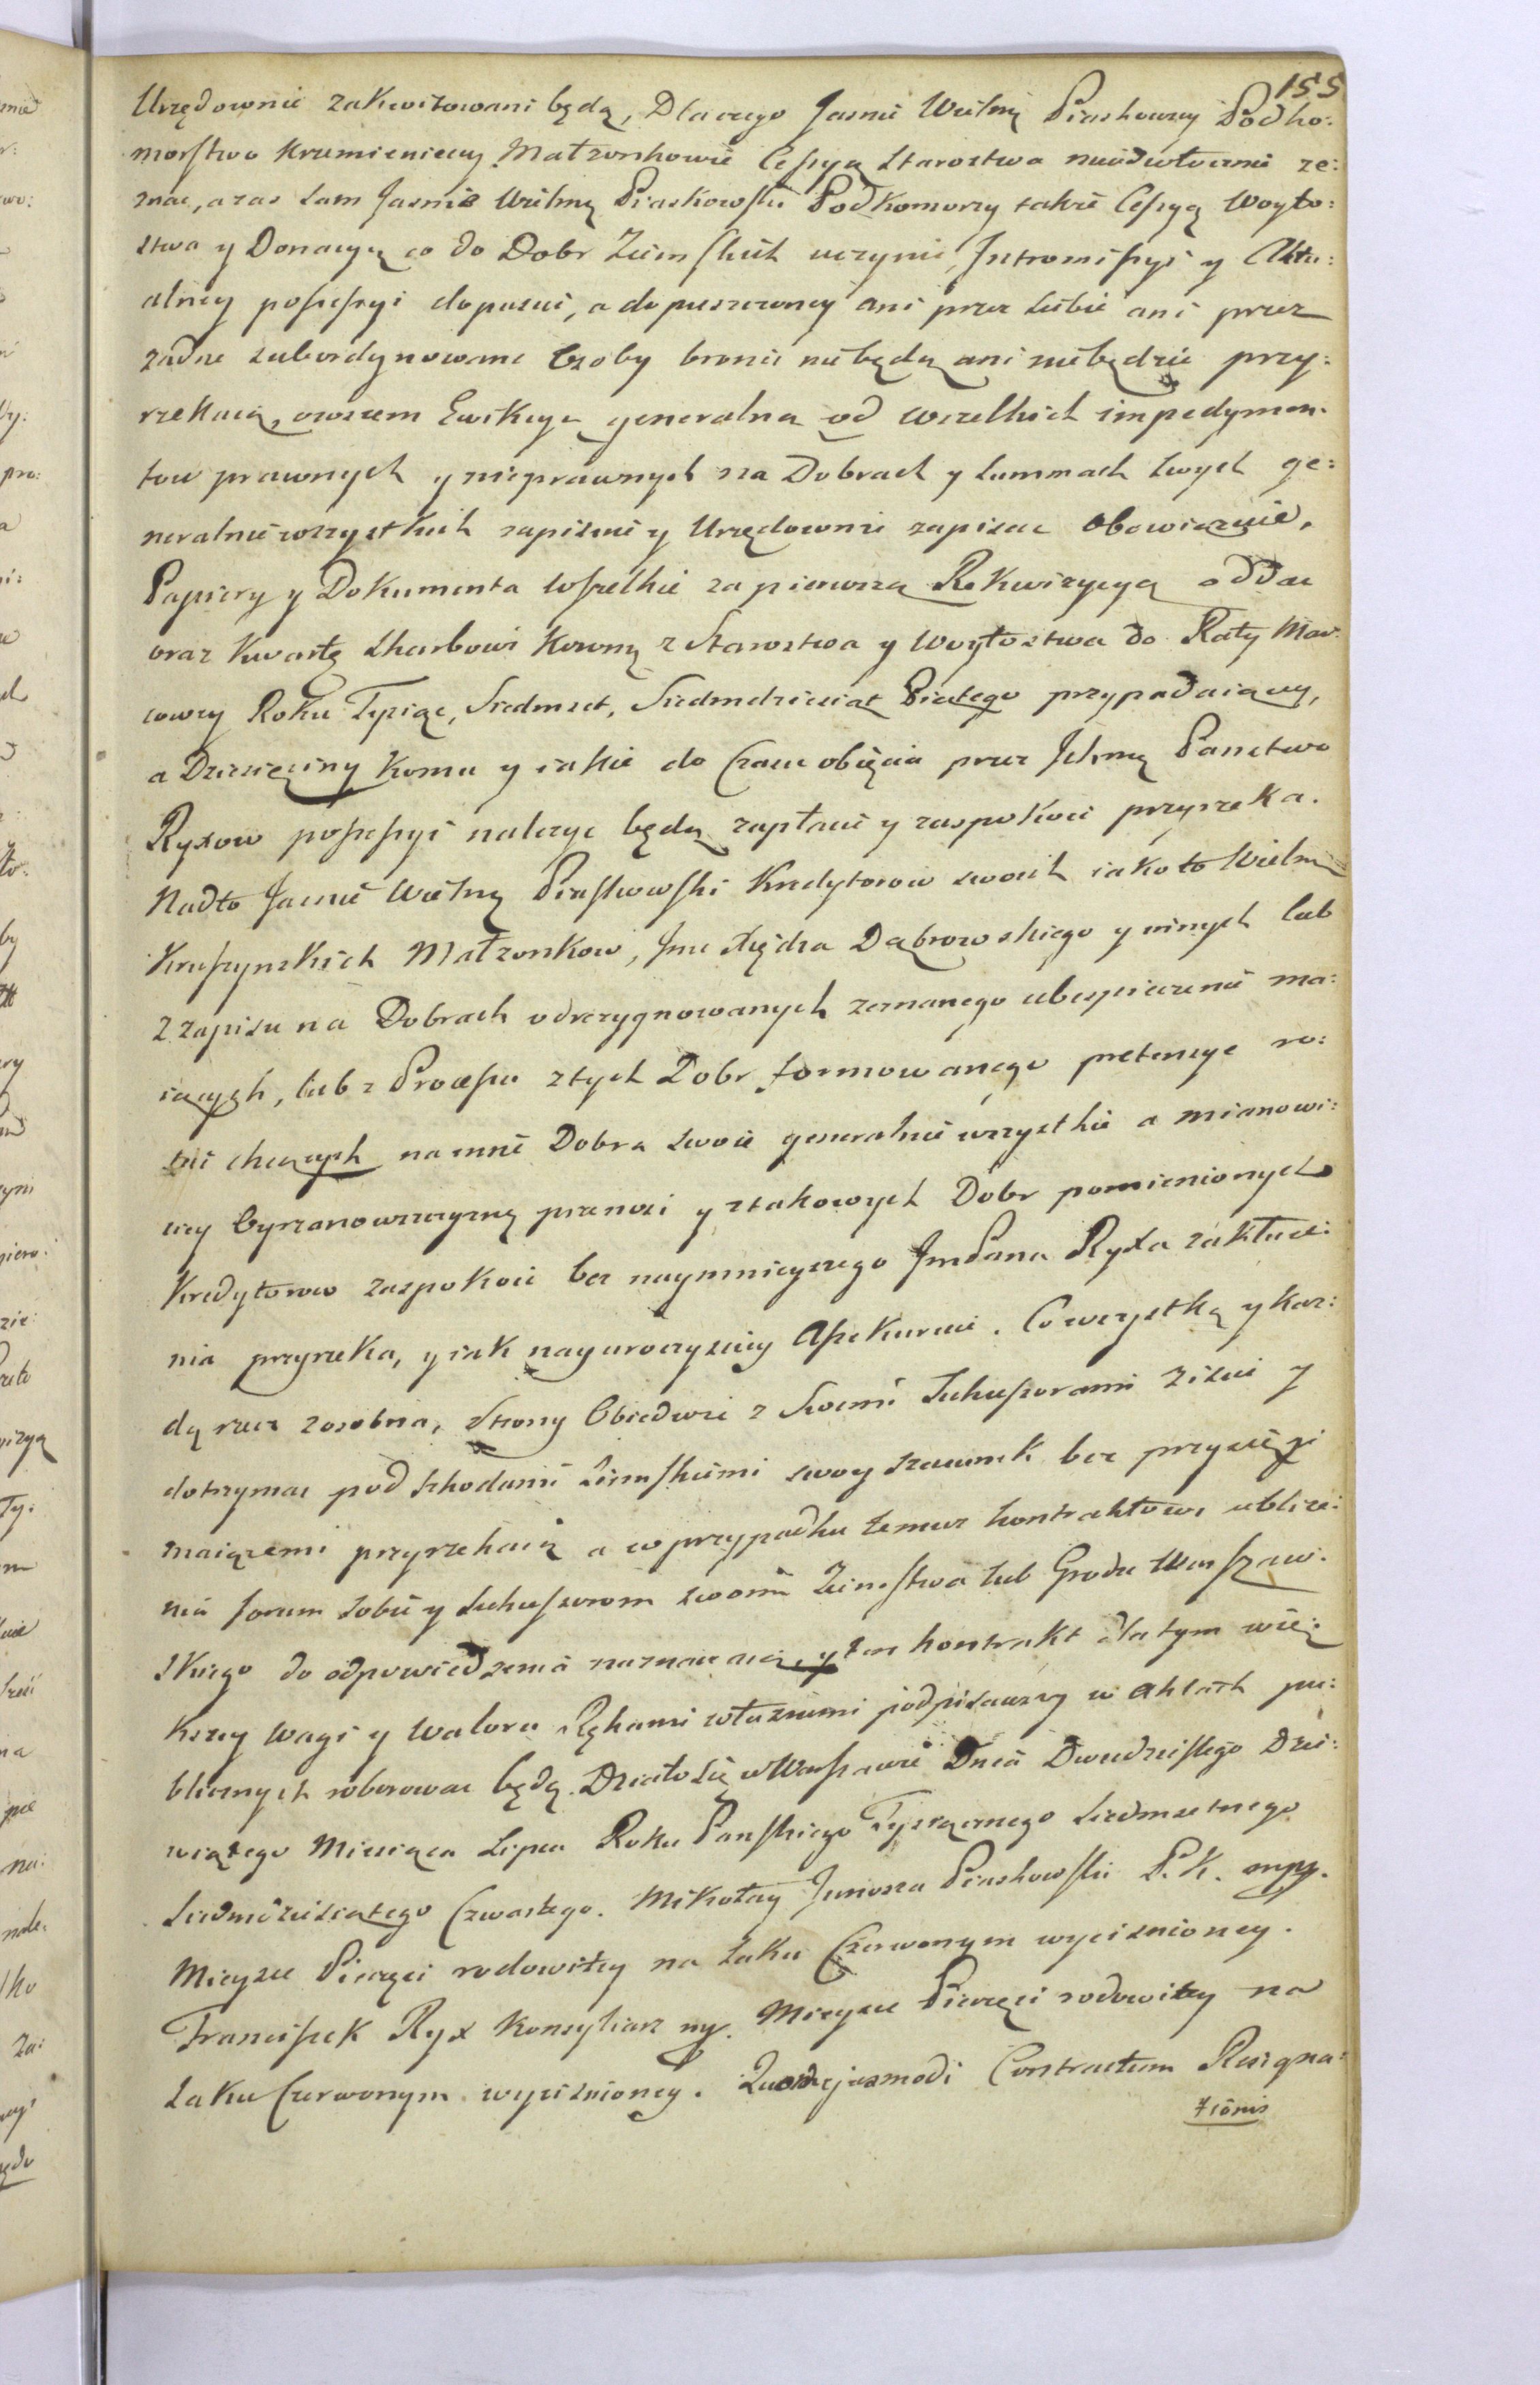 155
Urzędownie zakwitowani będą, Dlaczego Jasnie Wielmą Piaskowscy Podko:
morstwo Krzemieniecey Małzonkowie Cessyą Starostwa nieodwłocznie ze:
znac, a zas Sam Jasnie Wielmą Piaskowski PodKomorzy takze Cessyą Woyto:
stwa y Donacyą co do Dobr Ziemskich uczyni, Intromissyi y Aktu:
alney possessyi dopusci, a dopuszczoney ani przez Siebie ani przez
zadne subordynowane Osoby bronic niebędą ani niebędzie przy:
rzekaią, owszem Ewikcyą generalną od wszelkich impedymen:
tow prawnych y nieprawnych na Dobrach y Summach swych ge:
neralnie wszystkich zapisuie y Urzędownie zapisac obowiązuie,
Papiery y Dokumenta wszelkie za pierwszą Rekwizycyą oddac
oraz Kwartę Skarbowi Koronnę z Starostwa y Woytostwa do Raty Mar:
cowey Roku Tysiąc, Siedmset, Siedmdziesiąt Piątego przypadaiącey,
a Dziesięciny Komu y iakie do Czasu obięcia przez Ichmę Panstwo
Ryxow possessyi nalezyc będą zapłacic y zaspokoic przyrzeka.
Nadto Jasnie Wielmą Piaskowski Kredytorow swoich iako to Wielm
Kruszynskich Małzonkow, Jmc Xiędza Dąbrowskiego y innych lub
z zapisu na Dobrach odrezygnowanych zeznanego ubespieczenie ma:
iących, lub z Processu z tych Dobr formowanego pretensye ro:
scic chcących na inne Dobra swoie generalnie wszystkie a mianowi:
cey Cyrzanowszczyznę przenosi y z takowych Dobr pomienionych
Kredytorow zaspokoic bez naymnieyszego JmPana Ryxa zakłuce:
nia przyrzeka, y iak nayuroczysciey Assekuruie. Co wszystką y kaz:
dą rzecz zosobna, Strony Obiedwie z Swemi Sukcessorami ziscic y
dotrzymac pod szkodami Ziemskiemi swoy szacunek bez przysięgi
maiącemi przyrzekaią a w przypadku temuz kontraktowi ublize:
nia forum sobie y Sukcessorom swoim Ziemstwa lub Grodu Warszaw:
skiego do odpowiedzenia naznaczaią, y ten kontrakt dla tym wię:
kszey wagi y waloru Rękami własnemi podpisawszy w aktach pu:
blicznych roborowac będą. Działo się w Warszawie Dnia Dwudziestego Dzie:
wiątego Miesiąca Lipca Roku Panskiego Tysiącznego Siedmsetnego
Siedmdziesiątego Czwartego. Mikołay Junosza Piaskowski P. K. mpp.
Mieysce Pieczęci rodowitey na Laku Czerwonym wycisnioney.
Franciszek Ryx Konsyliarz mp. Mieysce Pieczęci rodowitey na
Laku Czerwonym wycisnioney. Quodejusmodi Contractum Resigna:
tionis